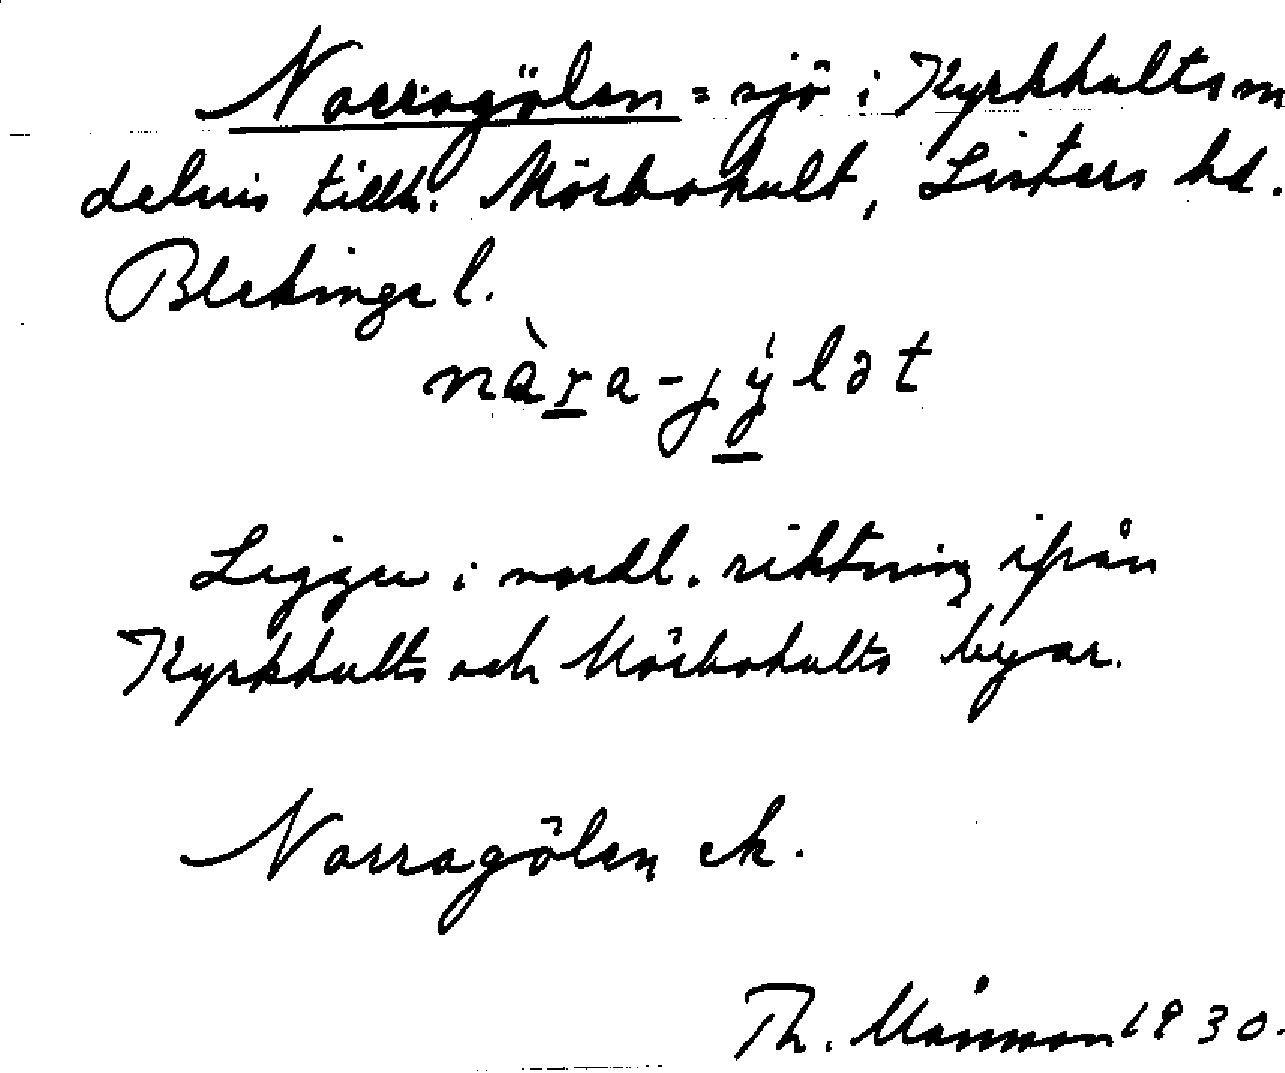 Norragölen = sjö i Kyrkhults sn
delvis tillh. Mörbohult, Listers hd.
Blekinge l.
nàra-jýlət
Ligger i nordl. riktning ifrån
Kyrkhults och Mörbohults byar.
Norragölen ek.
Th. Månsson 1930.